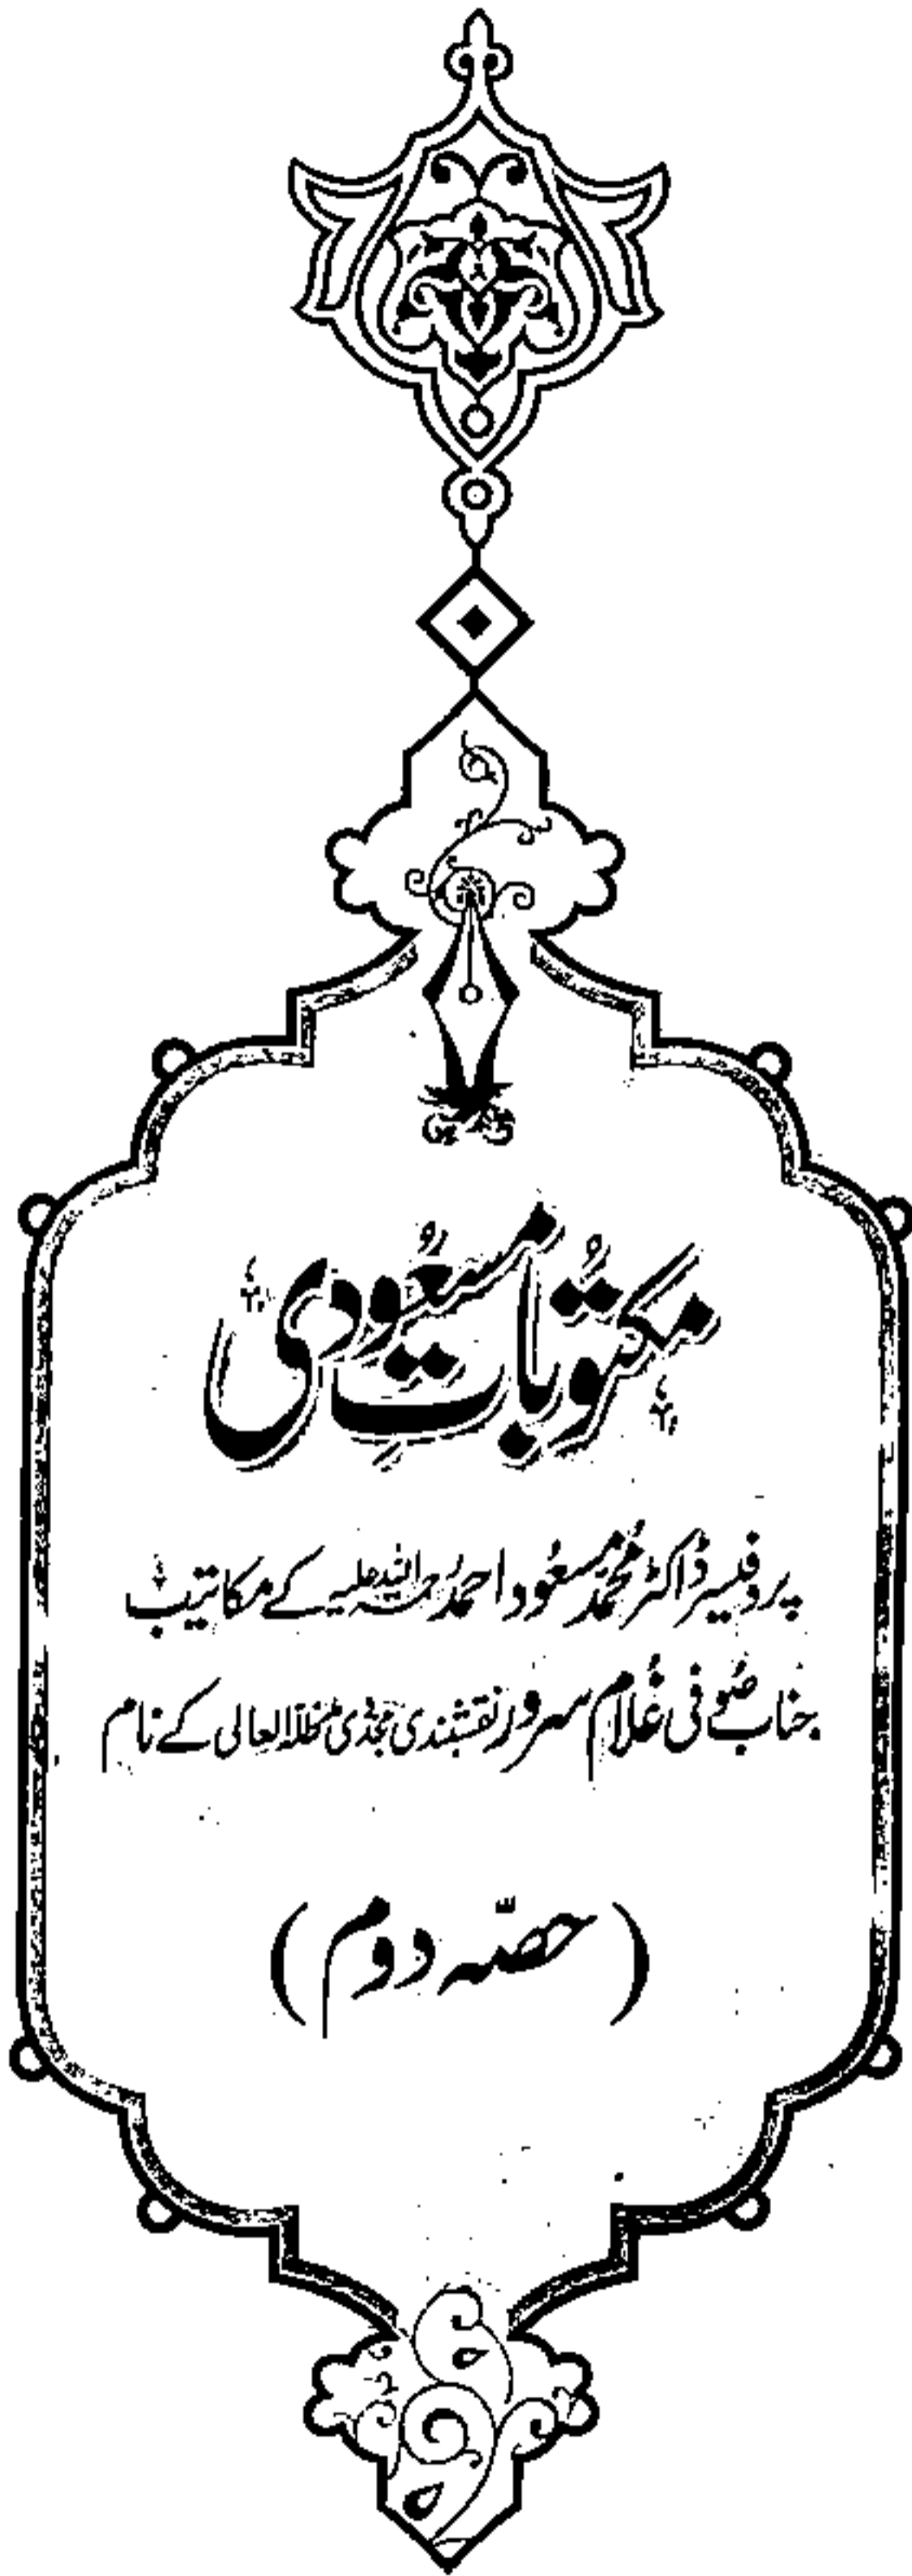 مکتوباتِ مسعودی
پروفیسر ڈاکٹر محمد مسعود احمد رحمۃ اللہ علیہ کے مکاتیب
جناب صوفی غلام سرور نقشبندی مجددی مدظلہ العالی کے نام
(حصّہ دوم)